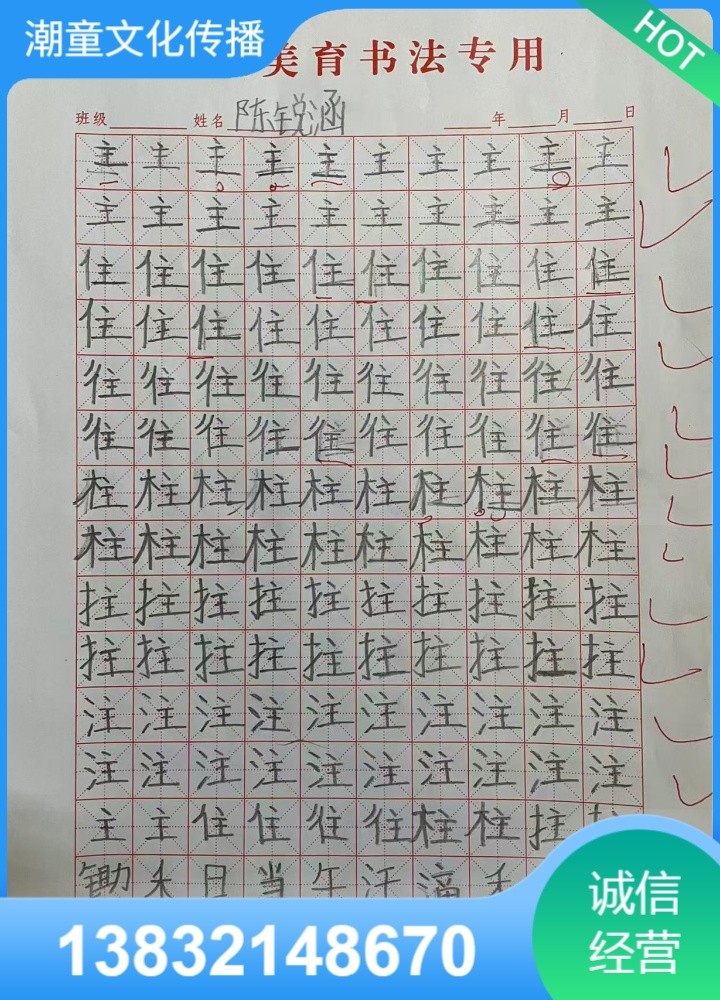 潮童文化传播
HOT
美育书法专用
班级 姓名 陈锐涵 年 月 日
主主主主主主主主主主
主主主主主主主主主主
住住住住住住住住住住
住住住住住住住住住住
往往往往往往往往往往
往往往往往往往往往往
柱柱柱柱柱柱柱柱柱柱
柱柱柱柱柱柱柱柱柱柱
拄拄拄拄拄拄拄拄拄拄
拄拄拄拄拄拄拄拄拄拄
注注注注注注注注注注
注注注注注注注注注注
主主住住往往柱柱拄
锄禾日当午汗滴禾
诚信
经营
13832148670